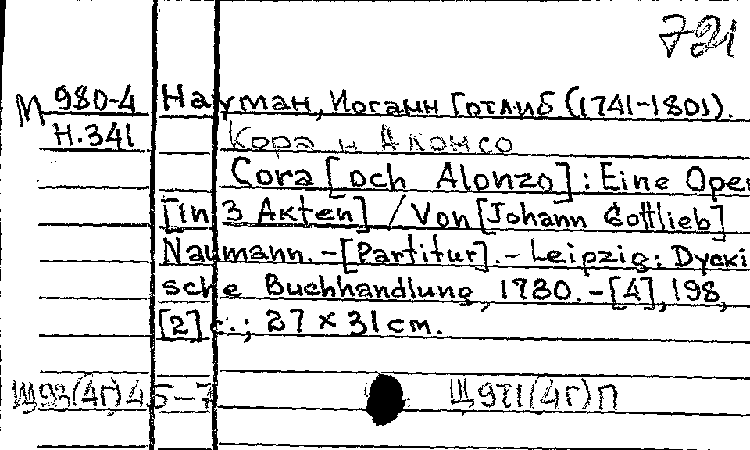 721
М 980-4 Науман, Иоганн Готлиб (1741-1801).
Н.341 Кора и Алонсо
Cora [och Alonzo] : Eine Oper
[in 3 Akten] / Von [Johann Gottlieb]
Naumann. - [Partitur]. - Leipzig : Dycki
sche Buchhandlung, 1780. - [4], 198,
[2] с. ; 27 x 31 cm.
Щ93(4Г)45-7 Щ971(4Г)П